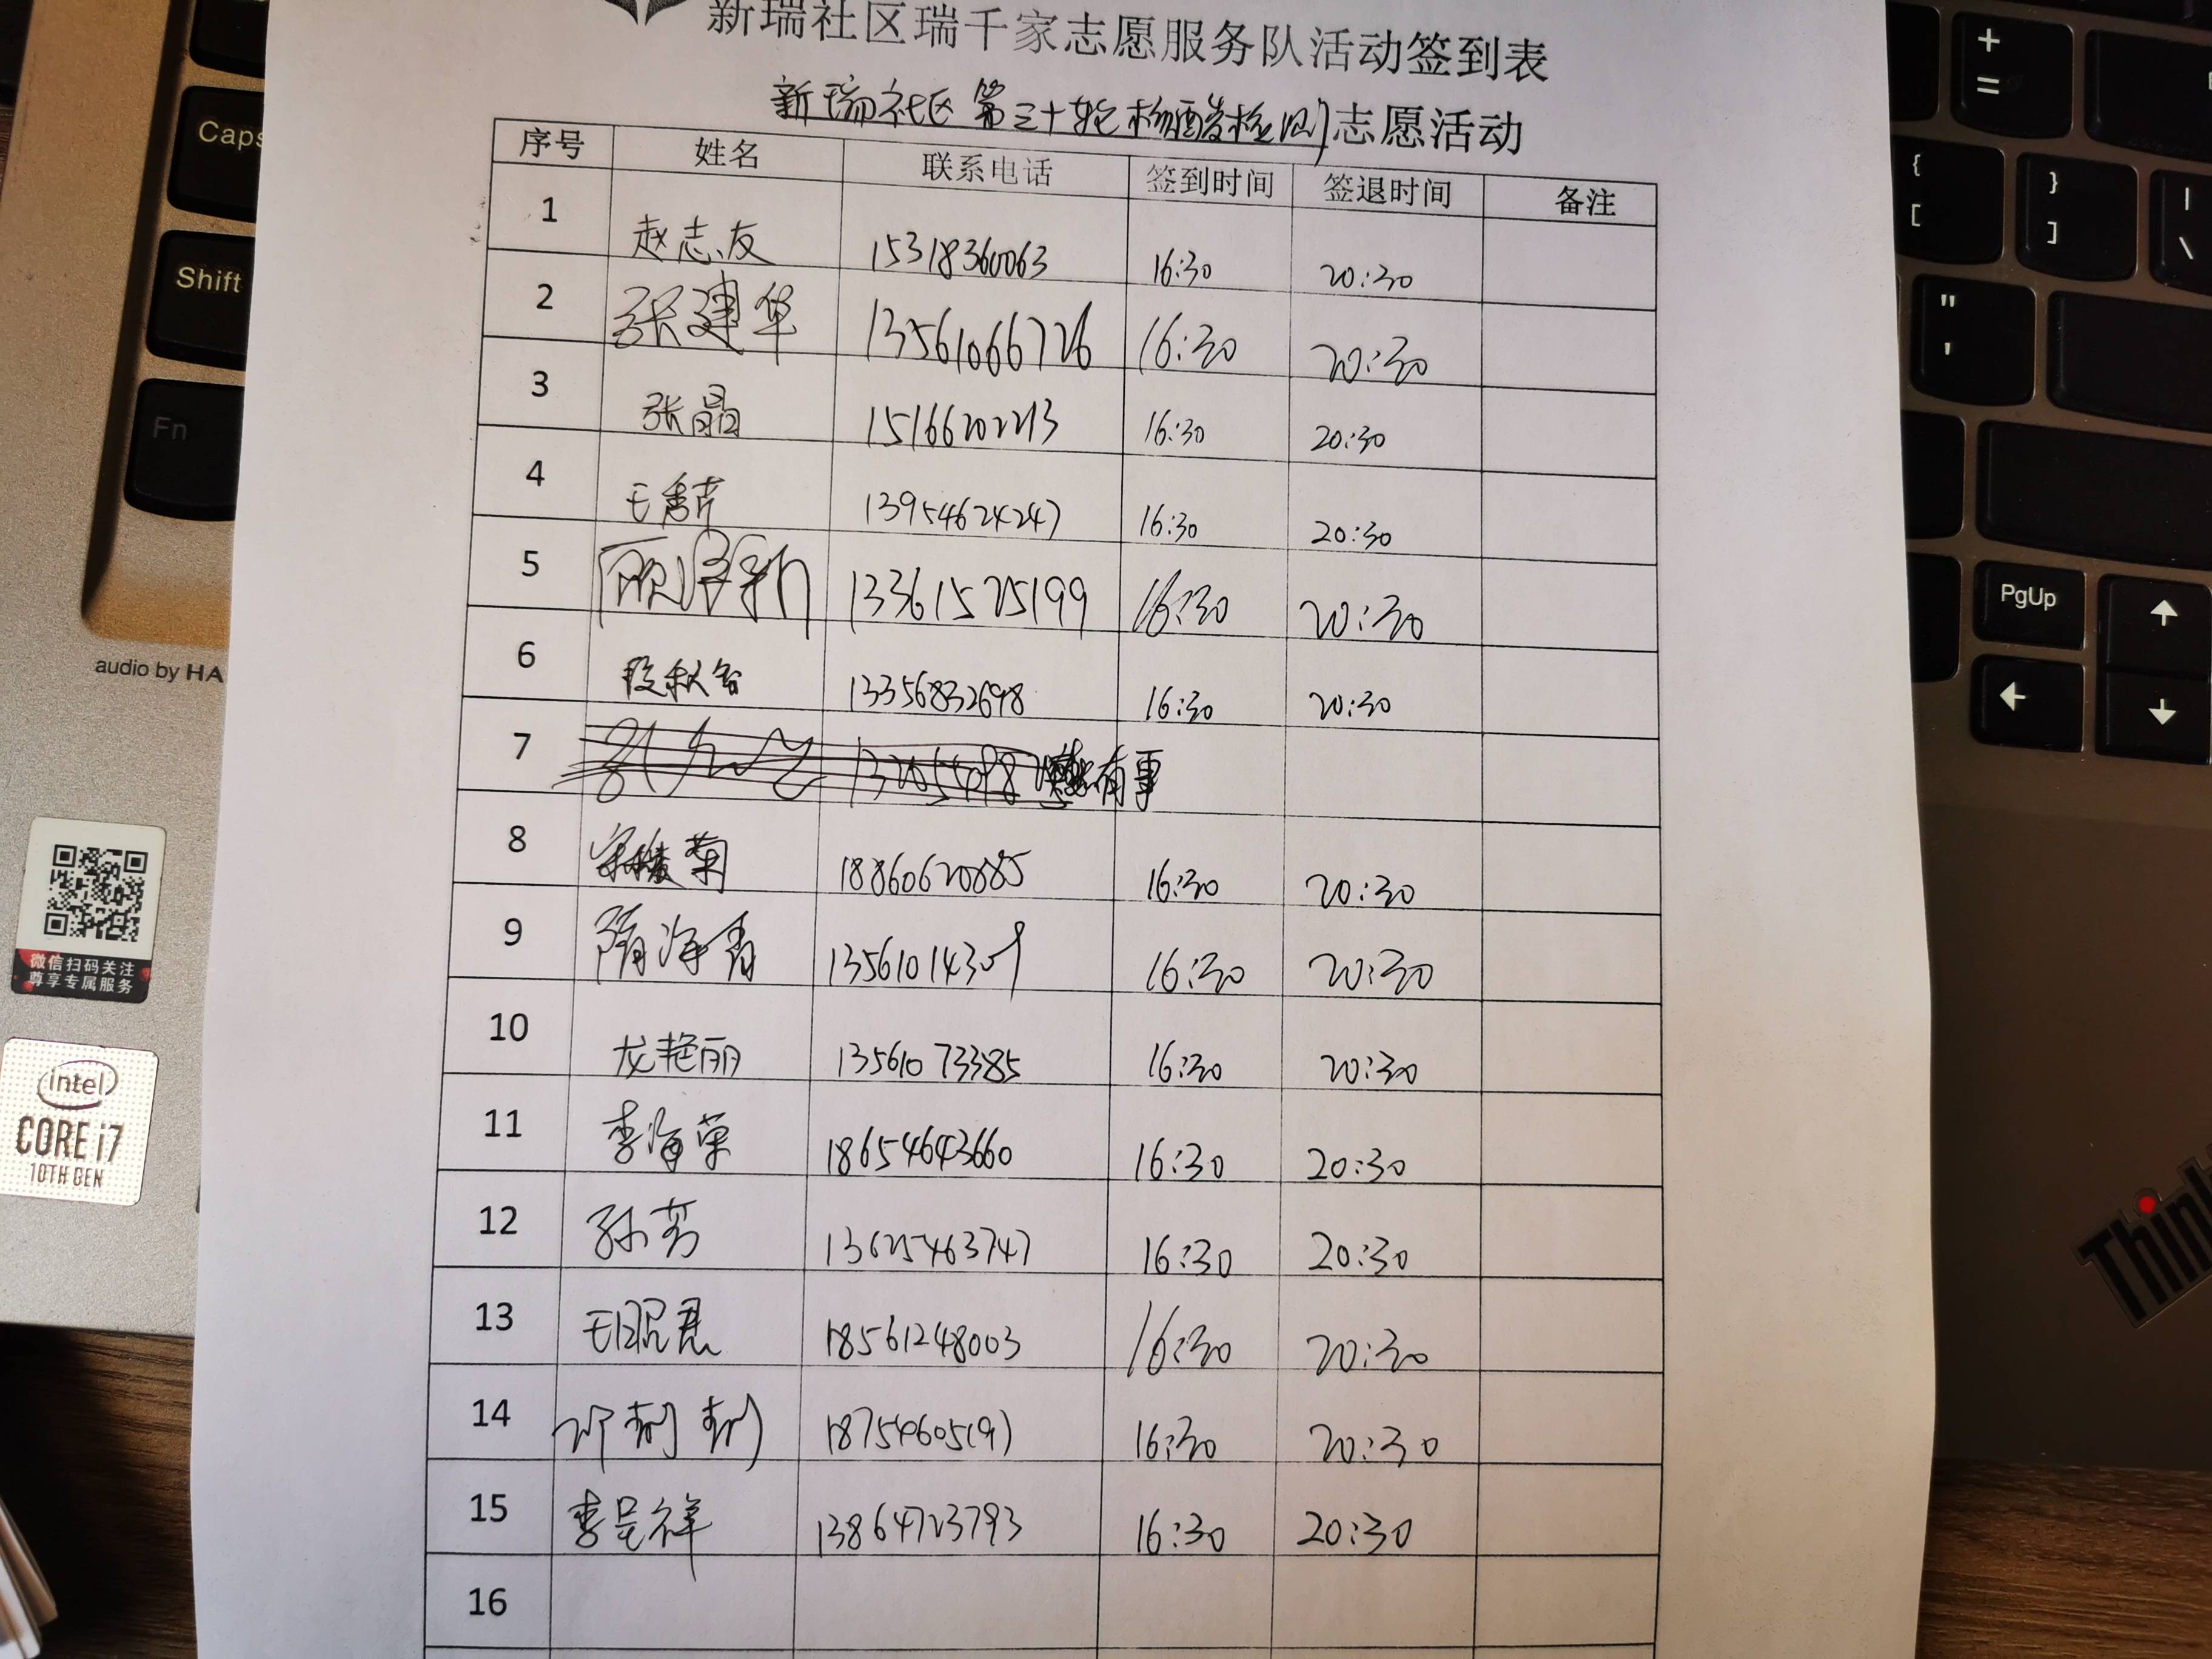 新瑞社区瑞千家志愿服务队活动签到表
新瑞社区第三十轮核酸检测志愿活动
序号 姓名 联系电话 签到时间 签退时间 备注
1 赵志友 15318360063 16:30 20:30
2 张建华 13561066726 16:30 20:30
3 张晶 15166202213 16:30 20:30
4 王秀芹 13954624247 16:30 20:30
5 顾泽新 13361525199 16:30 20:30
6 段秋香 13356832698 16:30 20:30
7 有事
8 宋棱菊 18860620885 16:30 20:30
9 隋海青 13561014309 16:30 20:30
10 龙艳丽 13561073385 16:30 20:30
11 李海荣 18654643660 16:30 20:30
12 孙芳 13625463747 16:30 20:30
13 王昆君 18561248003 16:30 20:30
14 16:30 20:30
15 李呈祥 13864723793 16:30 20:30
16
Caps
Shift
Fn
audio by HA
微信扫码关注
尊享专属服务
intel
CORE i7
10TH GEN
+
=
{
[
}
]
|
\
"
'
PgUp
↑
←
↓
Think